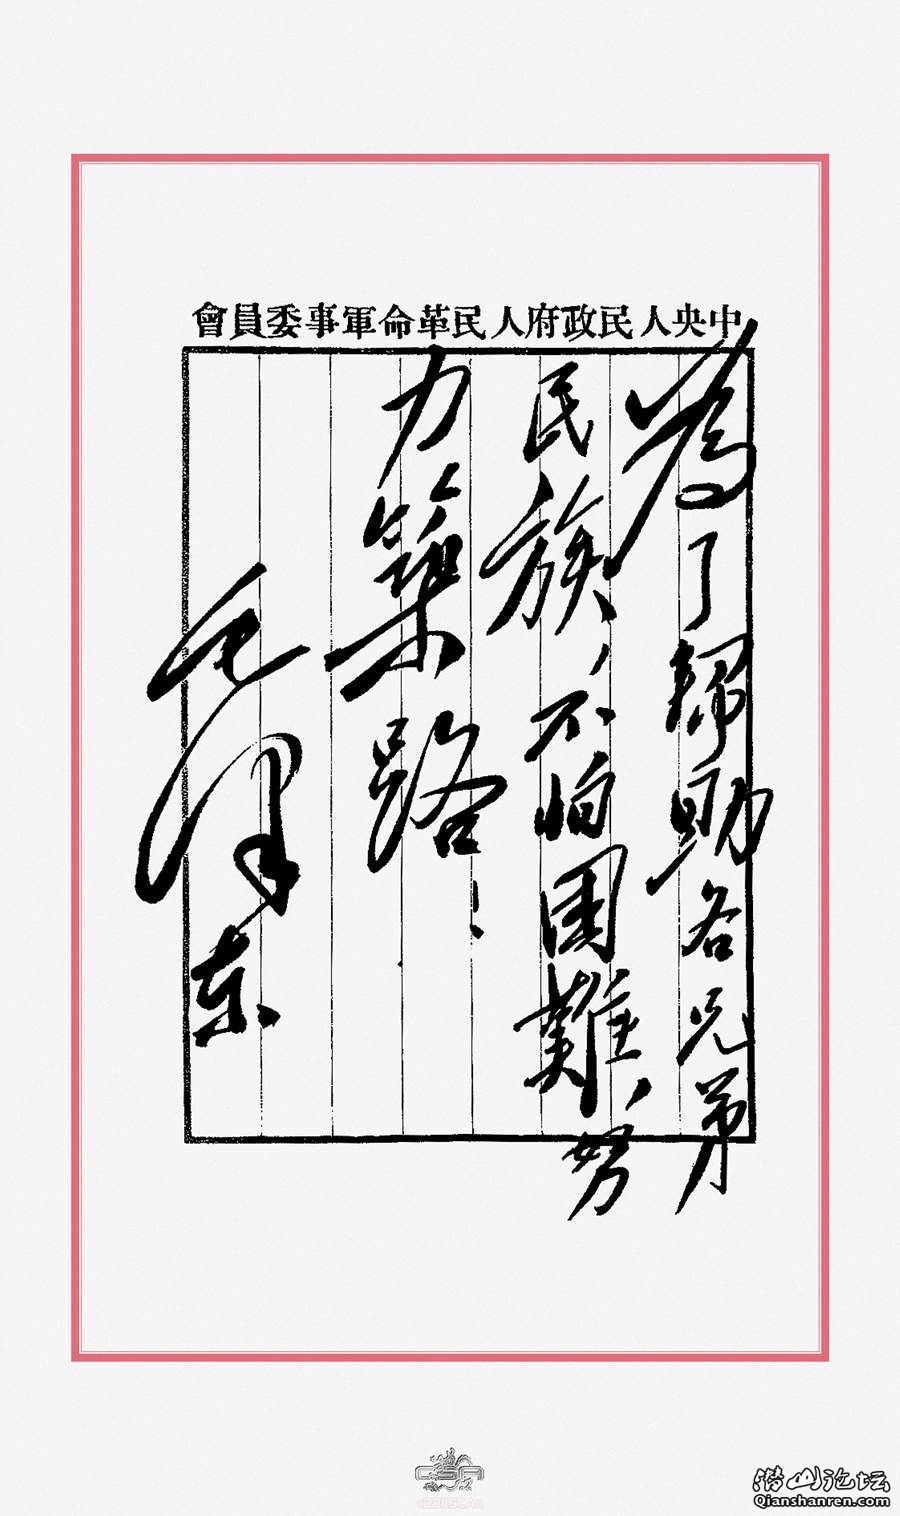 中央人民政府人民革命軍事委員會
為了帮助各兄弟
民族，不怕困難，努
力築路！
毛泽东
CSA
潜山论坛
Qianshanren.com